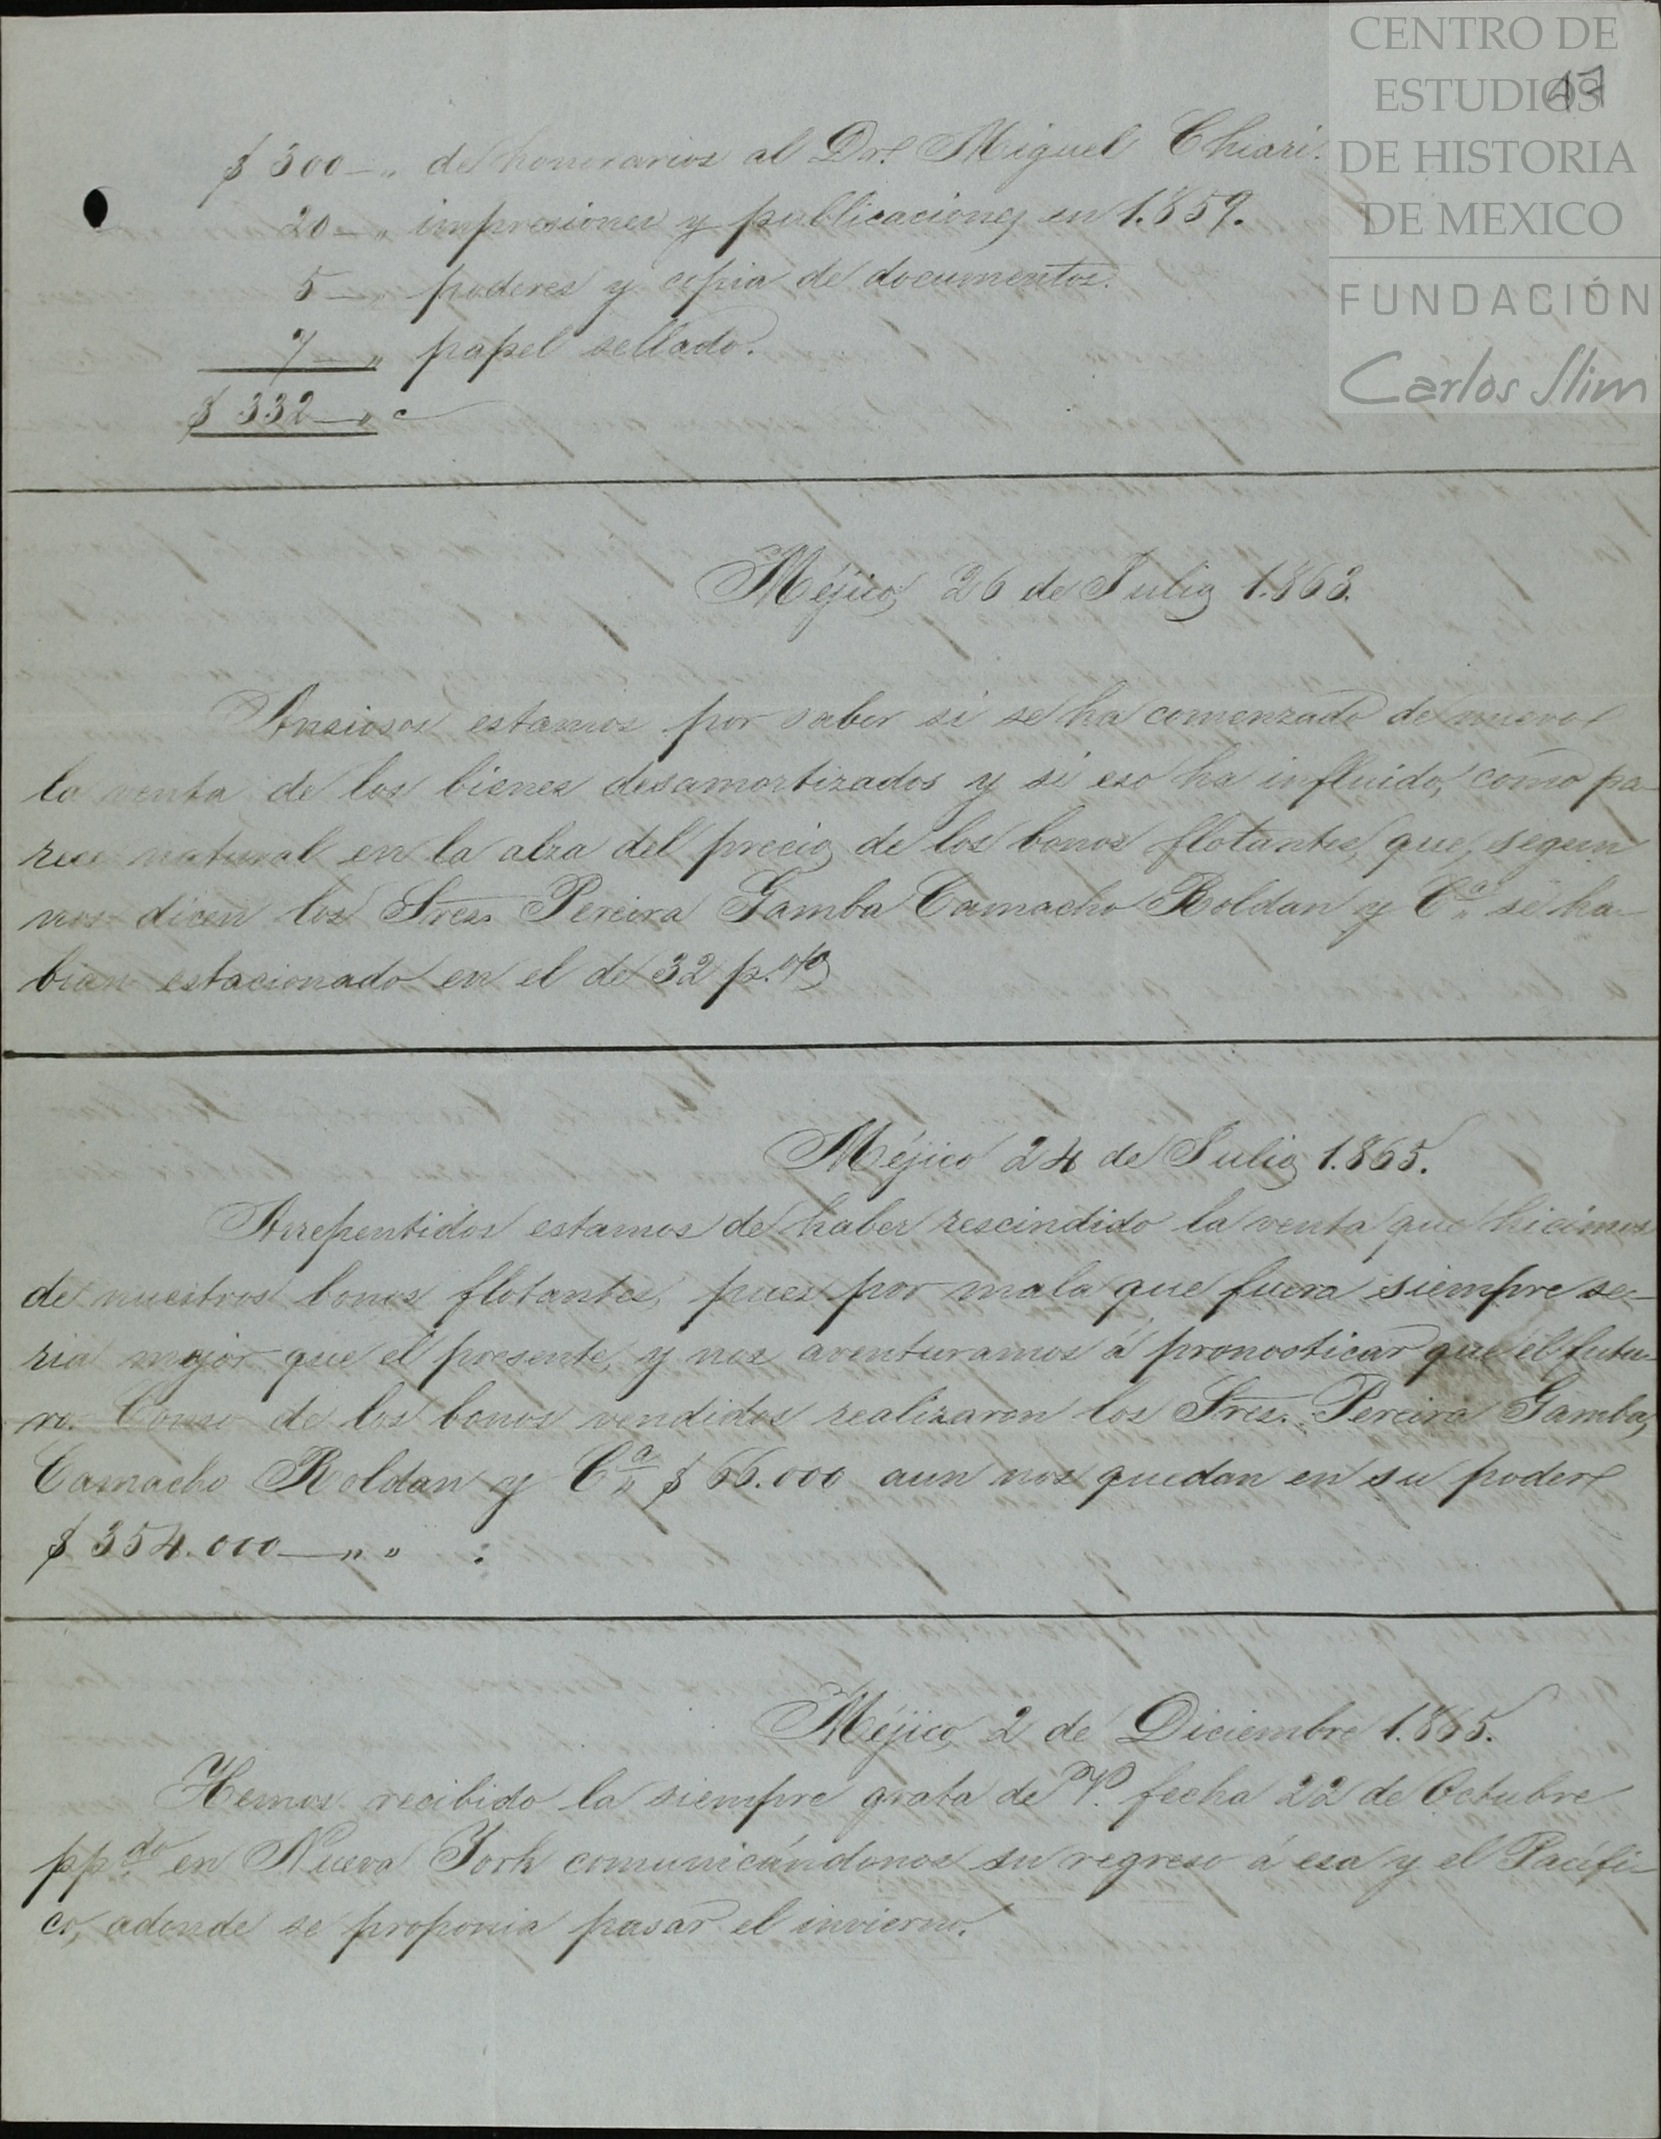 CENTRO DE
ESTUDIOS
DE HISTORIA
DE MEXICO
FUNDACIÓN
Carlos Slim
17
$ 300 — „ de honorarios al Dor. Miguel Chiari.
20 — „ impresiones y publicaciones en 1.859.
5 — „ poderes y copia de documentos.
7 — „ papel sellado.
$ 332 — „
Méjico, 26 de Julio 1.863.
Ansiosos estamos por saber si se ha comenzado de nuevo
la venta de los bienes desamortizados y si eso ha influido, como pa-
rece natural en la alza del precio de los bonos flotantes, que, segun
nos dicen los Sres. Pereira Gamba Camacho Roldan y Ca. se ha-
bian estacionado en el de 32 p.%
Méjico 24 de Julio 1.865.
Arrepentidos estamos de haber rescindido la venta que hicimos
de nuestros bonos flotantes, pues por mala que fuera siempre se-
ria mejor que el presente, y nos aventuramos á pronosticar que el futu-
ro. Como de los bonos vendidos realizaron los Sres. Pereira Gamba,
Camacho Roldan y Ca. $ 66.000 aun nos quedan en su poder
$ 354.000 — „ „ .
Méjico, 2 de Diciembre 1.865.
Hemos recibido la siempre grata de V. fecha 22 de Octubre
ppdo. en Nueva York comunicándonos su regreso á esa y el Pacífi-
co, adonde se proponia pasar el invierno.